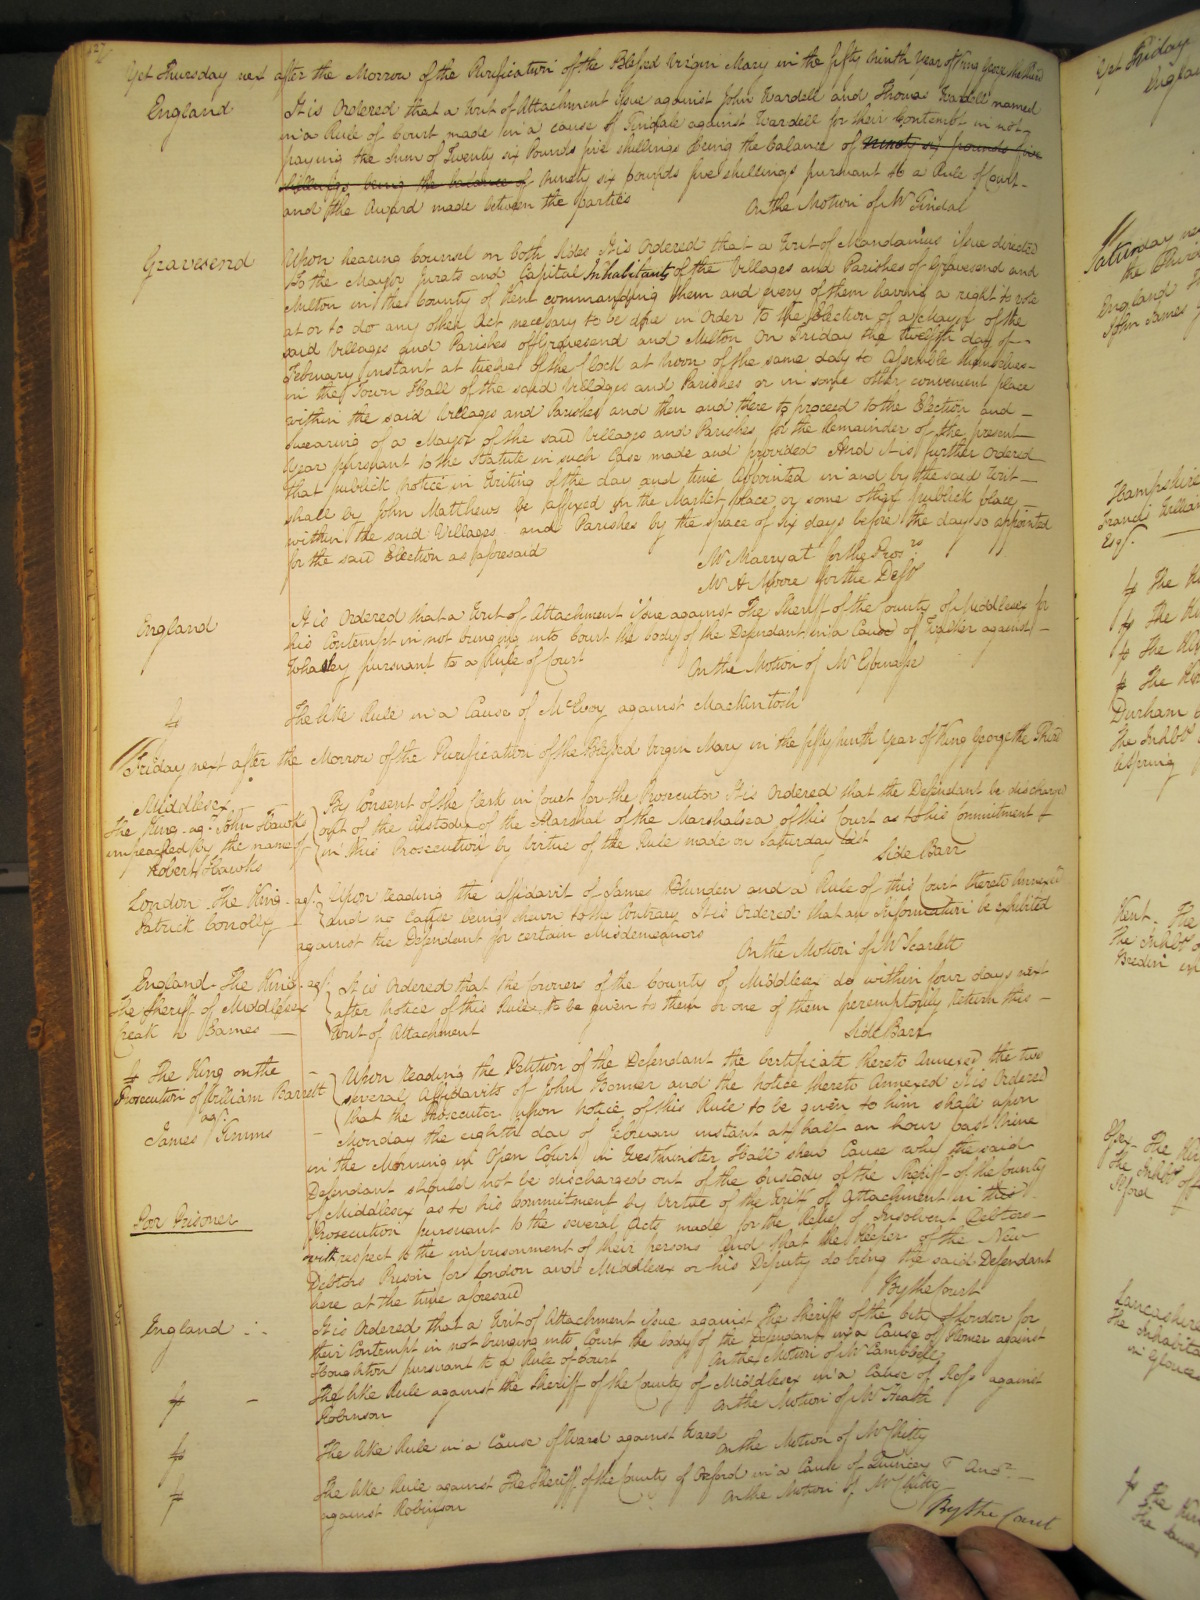 127
Yet Thursday next after the Morrow of the Purification of the Blessed Virgin Mary in the fifty ninth Year of King George the Third
England
It is Ordered that a Writ of Attachment issue against John Wardell and Thomas Wardell named
in a Rule of Court made in a cause of Tindale against Wardell for their Contempt in not
paying the Sum of Twenty six Pounds five shillings being the balance of ninety six pounds five
shillings being the balance of ninety six pounds five shillings pursuant to a Rule of Court
and the Award made between the parties
On the Motion of Mr Tindal
Gravesend
Upon hearing Counsel on both sides It is Ordered that a Writ of Mandamus issue directed
To the Mayor Jurats and Capital Inhabitants of the Villages and Parishes of Gravesend and
Milton in the County of Kent commanding them and every of them having a right to vote
at or to do any other Act necessary to be done in order to the Election of a Mayor of the
said Villages and Parishes of Gravesend and Milton on Friday the twelfth day of
February instant at twelve of the Clock at Noon of the same day to Assemble themselves
in the Town Hall of the said Villages and Parishes or in some other convenient place
within the said Villages and Parishes and then and there to proceed to the Election and
Swearing of a Mayor of the said Villages and Parishes for the remainder of the present
Year pursuant to the Statute in such Case made and provided And it is further Ordered
that publick notice in Writing of the day and time appointed in and by the said Writ
shall by John Matthews be affixed in the Market place or some other publick place
within the said Villages and Parishes by the space of six days before the day so appointed
for the said Election as aforesaid
Mr Marryat for the Pros:rs
Mr A Moore for the Defts
England
It is Ordered that a Writ of Attachment issue against The Sheriff of the County of Middlesex for
his Contempt in not bringing into Court the body of the Defendant in a Cause of Walker against
Whatley pursuant to a Rule of Court
On the Motion of Mr Espinasse
The like Rule in a Cause of McEvoy against Mackintosh
Friday next after the Morrow of the Purification of the Blessed Virgin Mary in the fifty ninth Year of King George the Third
Middlesex
The King agt John Hawks
impeached by the name of
Robert Hawks
By Consent of the Clerk in Court for the Prosecutor It is Ordered that the Defendant be discharged
out of the Custody of the Marshal of the Marshalsea of this Court as to his Commitment
in this Prosecution by virtue of the Rule made on Saturday last
Side Barr
London The King agt
Patrick Connolly
Upon reading the affidavit of James Blunden and a Rule of this Court thereto Annexed
and no cause being shewn to the Contrary It is Ordered that an Information be exhibited
against the Defendant for certain Misdemeanors
On the Motion of Mr Scarlett
England The King agt
The Sheriff of Middlesex
Creak v Barnes
It is Ordered that the Coroners of the County of Middlesex do within four days next
after Notice of this Rule to be given to them or one of them peremptorily return this
Writ of Attachment
Side Barr
The King on the
Prosecution of William Barrett
agt
James Timms
Upon reading the Petition of the Defendant the Certificate thereto Annexed the two
several Affidavits of John Bonner and the Notice thereto Annexed It is Ordered
that the Prosecutor upon Notice of this Rule to be given to him shall upon
Monday the eighth day of February instant at half an hour past Nine
in the Morning in Open Court in Westminster Hall shew Cause why the said
Defendant should not be discharged out of the Custody of the Sheriff of the County
of Middlesex as to his Commitment by Virtue of the Writ of Attachment in this
Poor Prisoner
Prosecution pursuant to the several Acts made for the Relief of Insolvent Debtors
with respect to the imprisonment of their persons And that the Keeper of the New
Debtors Prison for London and Middlesex or his Deputy do bring the said Defendant
here at the time aforesaid
By the Court
England
It is Ordered that a Writ of Attachment issue against the Sheriffs of the City of London for
their Contempt in not bringing into Court the body of the Defendant in a Cause of Plomer against
Houghton pursuant to a Rule of Court
On the Motion of Mr Campbell
The like Rule against the Sheriff of the County of Middlesex in a Cause of Ross against
Robinson
On the Motion of Mr Heath
The like Rule in a Cause of Ward against Ward
On the Motion of Mr Chitty
The like Rule against The Sheriff of the County of Oxford in a Cause of Quincey & Anor
against Robinson
On the Motion of Mr
By the Court
Yet Friday
Englan
Saturday ne
the Third
England
John James
Hampshire
Francis William
Esqr
The Ki
The Ki
The Kin
The Ki
Durham
The Inhbts
Kent The
The Inhbts o
Bredin
Essex The Kin
The Inhbts of
Ilford
Lancashire
The Inhabita
in Glouces
The Kin
The James